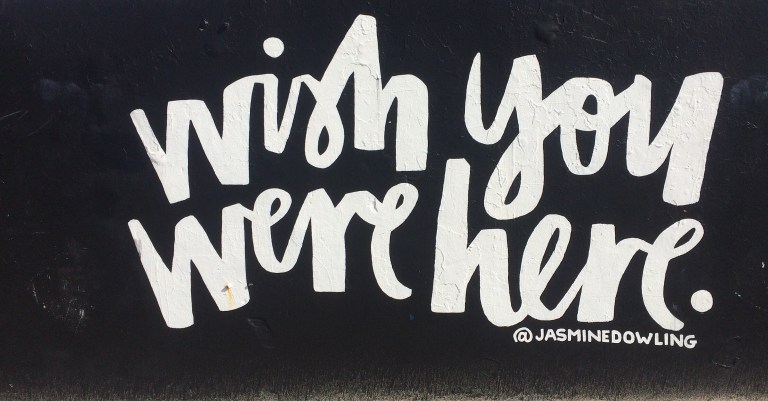 wish you
were here.
@JASMINEDOWLING